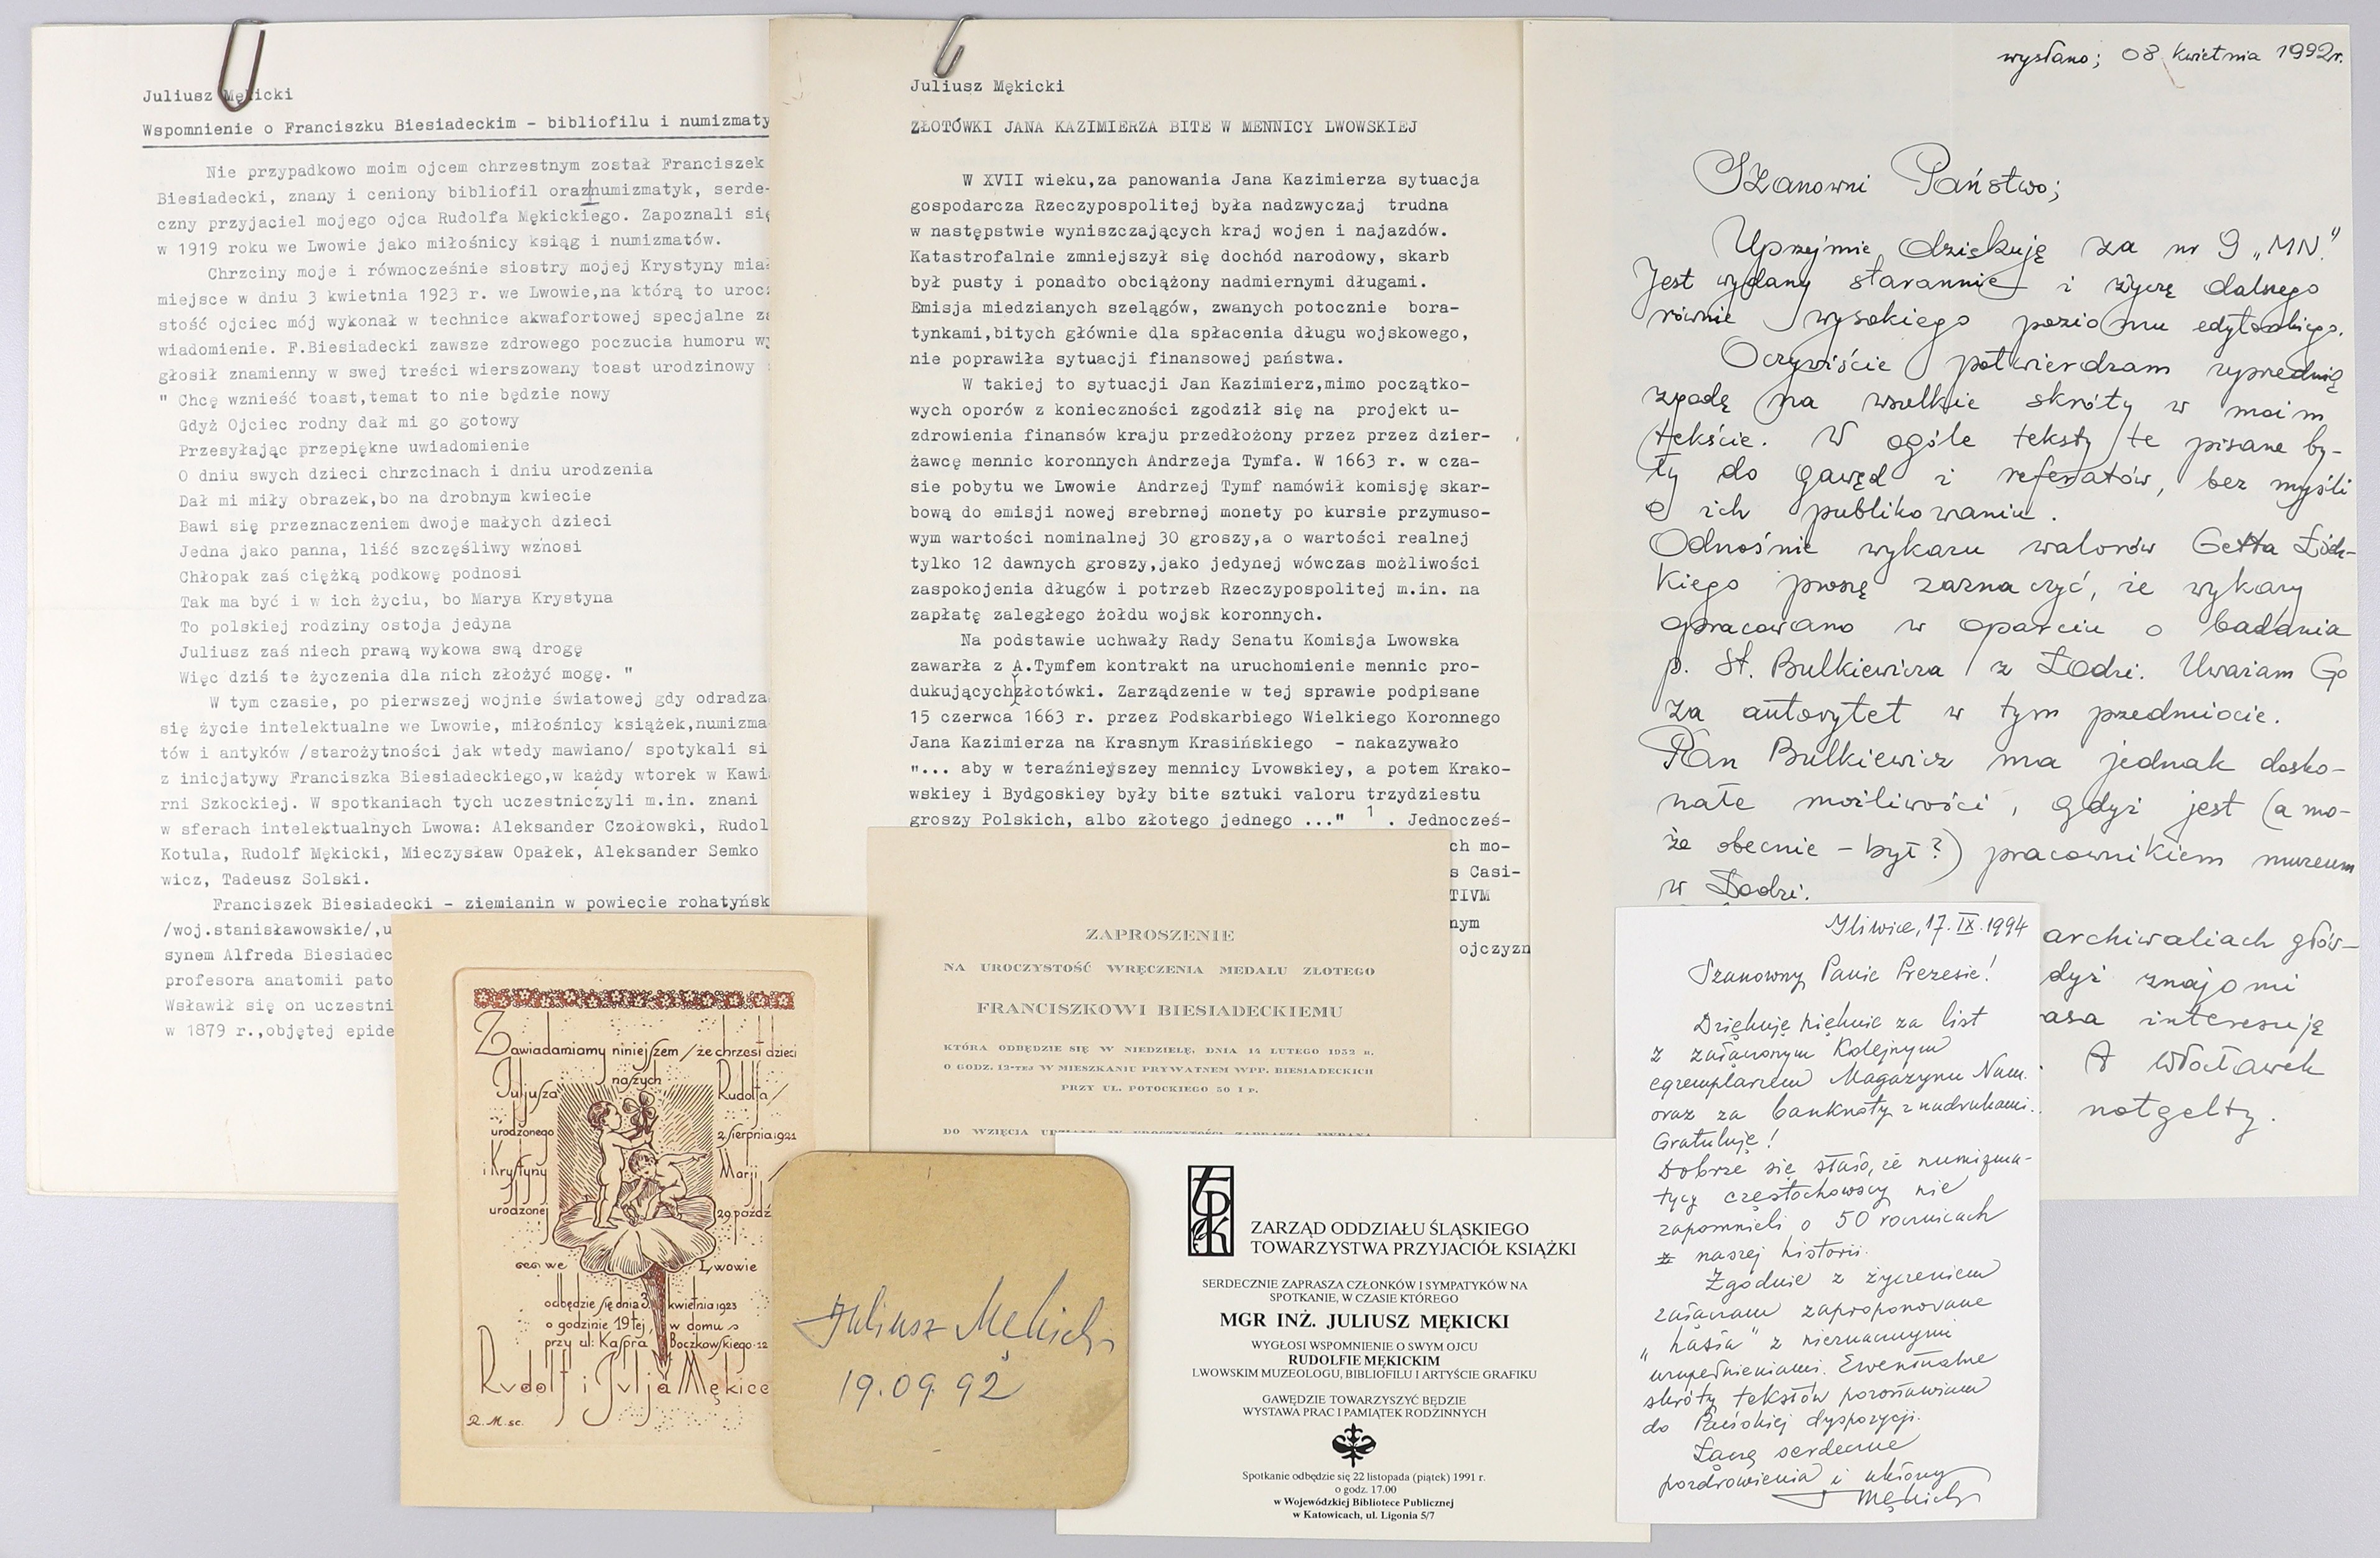 Juliusz Mękicki
Wspomnienie o Franciszku Biesiadeckim - bibliofilu i numizmaty
Nie przypadkowo moim ojcem chrzestnym został Franciszek
Biesiadecki, znany i ceniony bibliofil oraz numizmatyk, serde-
czny przyjaciel mojego ojca Rudolfa Mękickiego. Zapoznali się
w 1919 roku we Lwowie jako miłośnicy ksiąg i numizmatów.
Chrzciny moje i równocześnie siostry mojej Krystyny mia
miejsce w dniu 3 kwietnia 1923 r. we Lwowie,na którą to uroc
stość ojciec mój wykonał w technice akwafortowej specjalne za
wiadomienie. F.Biesiadecki zawsze zdrowego poczucia humoru wy
głosił znamienny w swej treści wierszowany toast urodzinowy
" Chcę wznieść toast,temat to nie będzie nowy
Gdyż Ojciec rodny dał mi go gotowy
Przesyłając przepiękne uwiadomienie
O dniu swych dzieci chrzcinach i dniu urodzenia
Dał mi miły obrazek,bo na drobnym kwiecie
Bawi się przeznaczeniem dwoje małych dzieci
Jedna jako panna, liść szczęśliwy wznosi
Chłopak zaś ciężką podkowę podnosi
Tak ma być i w ich życiu, bo Marya Krystyna
To polskiej rodziny ostoja jedyna
Juliusz zaś niech prawą wykowa swą drogę
Więc dziś te życzenia dla nich złożyć mogę. "
W tym czasie, po pierwszej wojnie światowej gdy odradza
się życie intelektualne we Lwowie, miłośnicy książek,numizma
tów i antyków /starożytności jak wtedy mawiano/ spotykali si
z inicjatywy Franciszka Biesiadeckiego,w każdy wtorek w Kawi
rni Szkockiej. W spotkaniach tych uczestniczyli m.in. znani
w sferach intelektualnych Lwowa: Aleksander Czołowski, Rudol
Kotula, Rudolf Mękicki, Mieczysław Opałek, Aleksander Semko
wicz, Tadeusz Solski.
Franciszek Biesiadecki - ziemianin w powiecie rohatyńsk
/woj.stanisławowskie/,u
synem Alfreda Biesiadec
profesora anatomii pato
Wsławił się on uczestni
w 1879 r.,objętej epide
Juliusz Mękicki
ZŁOTÓWKI JANA KAZIMIERZA BITE W MENNICY LWOWSKIEJ
W XVII wieku,za panowania Jana Kazimierza sytuacja
gospodarcza Rzeczypospolitej była nadzwyczaj trudna
w następstwie wyniszczających kraj wojen i najazdów.
Katastrofalnie zmniejszył się dochód narodowy, skarb
był pusty i ponadto obciążony nadmiernymi długami.
Emisja miedzianych szelągów, zwanych potocznie bora-
tynkami,bitych głównie dla spłacenia długu wojskowego,
nie poprawiła sytuacji finansowej państwa.
W takiej to sytuacji Jan Kazimierz,mimo początko-
wych oporów z konieczności zgodził się na projekt u-
zdrowienia finansów kraju przedłożony przez przez dzier-
żawcę mennic koronnych Andrzeja Tymfa. W 1663 r. w cza-
sie pobytu we Lwowie Andrzej Tymf namówił komisję skar-
bową do emisji nowej srebrnej monety po kursie przymuso-
wym wartości nominalnej 30 groszy,a o wartości realnej
tylko 12 dawnych groszy,jako jedynej wówczas możliwości
zaspokojenia długów i potrzeb Rzeczypospolitej m.in. na
zapłatę zaległego żołdu wojsk koronnych.
Na podstawie uchwały Rady Senatu Komisja Lwowska
zawarła z A.Tymfem kontrakt na uruchomienie mennic pro-
dukujących złotówki. Zarządzenie w tej sprawie podpisane
15 czerwca 1663 r. przez Podskarbiego Wielkiego Koronnego
Jana Kazimierza na Krasnym Krasińskiego - nakazywało
"... aby w teraźnieyszey mennicy Lvowskiey, a potem Krako-
wskiey i Bydgoskiey były bite sztuki valoru trzydziestu
groszy Polskich, albo złotego jednego ..." 1 . Jednocześ-
ch mo-
s Casi-
TIVM
nym
ojczyzn
wysłano; 08 kwietnia 1992r.
Szanowni Państwo;
Uprzejmie dziękuję za nr 9 „MN."
Jest wydany starannie i życzę dalszego
równie wysokiego poziomu edytorskiego.
Oczywiście potwierdzam uprzednią
zgodę na wszelkie skróty w moim
tekście. W ogóle teksty te pisane by-
ły do gawęd i referatów, bez myśli
o ich publikowaniu.
Odnośnie wykazu walorów Getta Łódz-
kiego proszę zaznaczyć, że wykazy
opracowano w oparciu o badania
p. St. Bulkiewicza z Łodzi. Uważam Go
za autorytet w tym przedmiocie.
Pan Bulkiewicz ma jednak dosko-
nałe możliwości, gdyż jest (a mo-
że obecnie - był?) pracownikiem muzeum
w Łodzi.
archiwaliach głów-
dyż znajomi
asa interesują
A Włocławek
notgelty.
ZAPROSZENIE
NA UROCZYSTOŚĆ WRĘCZENIA MEDALU ZŁOTEGO
FRANCISZKOWI BIESIADECKIEMU
KTÓRA ODBĘDZIE SIĘ W NIEDZIELĘ, DNIA 14 LUTEGO 1932 R.
O GODZ. 12-TEJ W MIESZKANIU PRYWATNEM WPP. BIESIADECKICH
PRZY UL. POTOCKIEGO 50 I P.
DO WZIĘCIA UDZIAŁU W UROCZYSTOŚCI ZAPRASZA
Zawiadamiamy niniejszem / że chrzest dzieci
naszych
Juljusza Rudolfa /
urodzonego 2 sierpnia 1921
i Krystyny Marji /
urodzonej 29 paźdź
we Lwowie
odbędzie się dnia 3 kwietnia 1923
o godzinie 19tej, w domu
przy ul: Kaspra Boczkowskiego 12
Rudolf i Julja Mękice
R. M. sc.
Juliusz Mękicki
19.09.92
TPK
ZARZĄD ODDZIAŁU ŚLĄSKIEGO
TOWARZYSTWA PRZYJACIÓŁ KSIĄŻKI
SERDECZNIE ZAPRASZA CZŁONKÓW I SYMPATYKÓW NA
SPOTKANIE, W CZASIE KTÓREGO
MGR INŻ. JULIUSZ MĘKICKI
WYGŁOSI WSPOMNIENIE O SWYM OJCU
RUDOLFIE MĘKICKIM
LWOWSKIM MUZEOLOGU, BIBLIOFILU I ARTYŚCIE GRAFIKU
GAWĘDZIE TOWARZYSZYĆ BĘDZIE
WYSTAWA PRAC I PAMIĄTEK RODZINNYCH
Spotkanie odbędzie się 22 listopada (piątek) 1991 r.
o godz. 17.00
w Wojewódzkiej Bibliotece Publicznej
w Katowicach, ul. Ligonia 5/7
Gliwice, 17.IX.1994
Szanowny Panie Prezesie!
Dziękuję pięknie za list
z załączonym kolejnym
egzemplarzem Magazynu Num.
oraz za banknoty z nadrukami.
Gratuluję!
Dobrze się stało, że numizma-
tycy częstochowscy nie
zapomnieli o 50 rocznicach
z naszej historii.
Zgodnie z życzeniem
załączam zaproponowane
„hasła" z nieznacznymi
uzupełnieniami. Ewentualne
skróty tekstów pozostawiam
do Pańskiej dyspozycji.
Łączę serdeczne
pozdrowienia i ukłony
J Mękicki